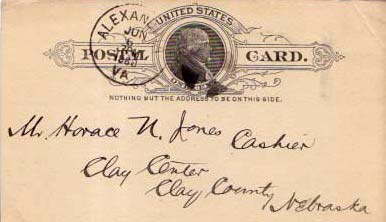 UNITED STATES
POSTAL CARD.
ALEXAN
JUN
VA.
NOTHING BUT THE ADDRESS TO BE ON THIS SIDE.
Mr. Horace N. Jones Cashier
Clay Center
Clay County
Nebraska